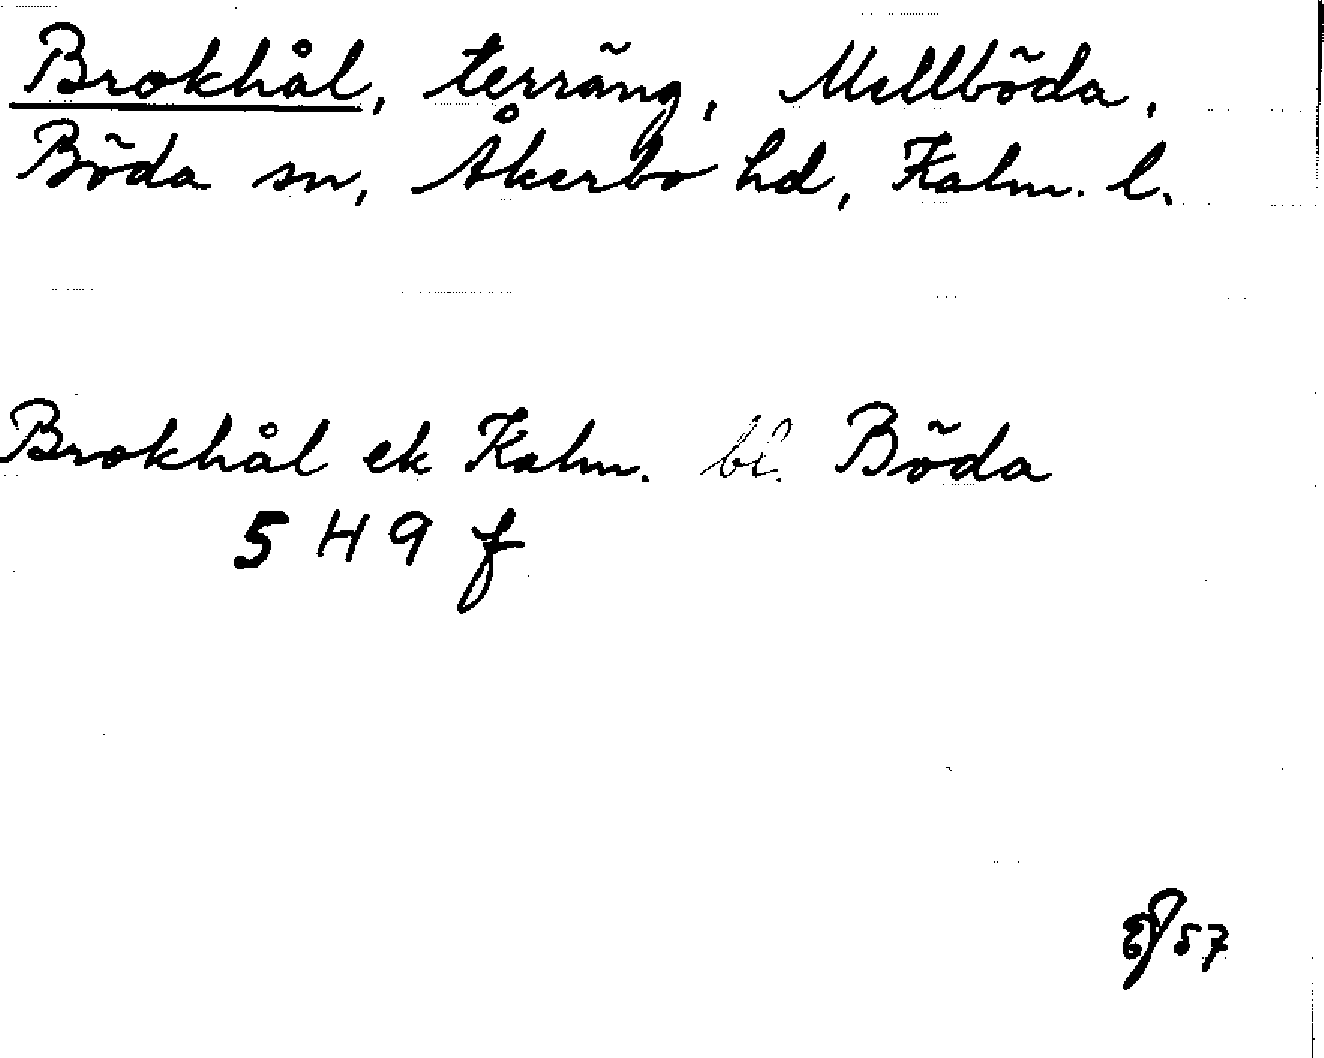 Brokhål, terräng, Mellböda,
Böda sn, Åkerbo hd, Kalm. l.
Brokhål ek Kalm. bl. Böda
5 H 9 f
57